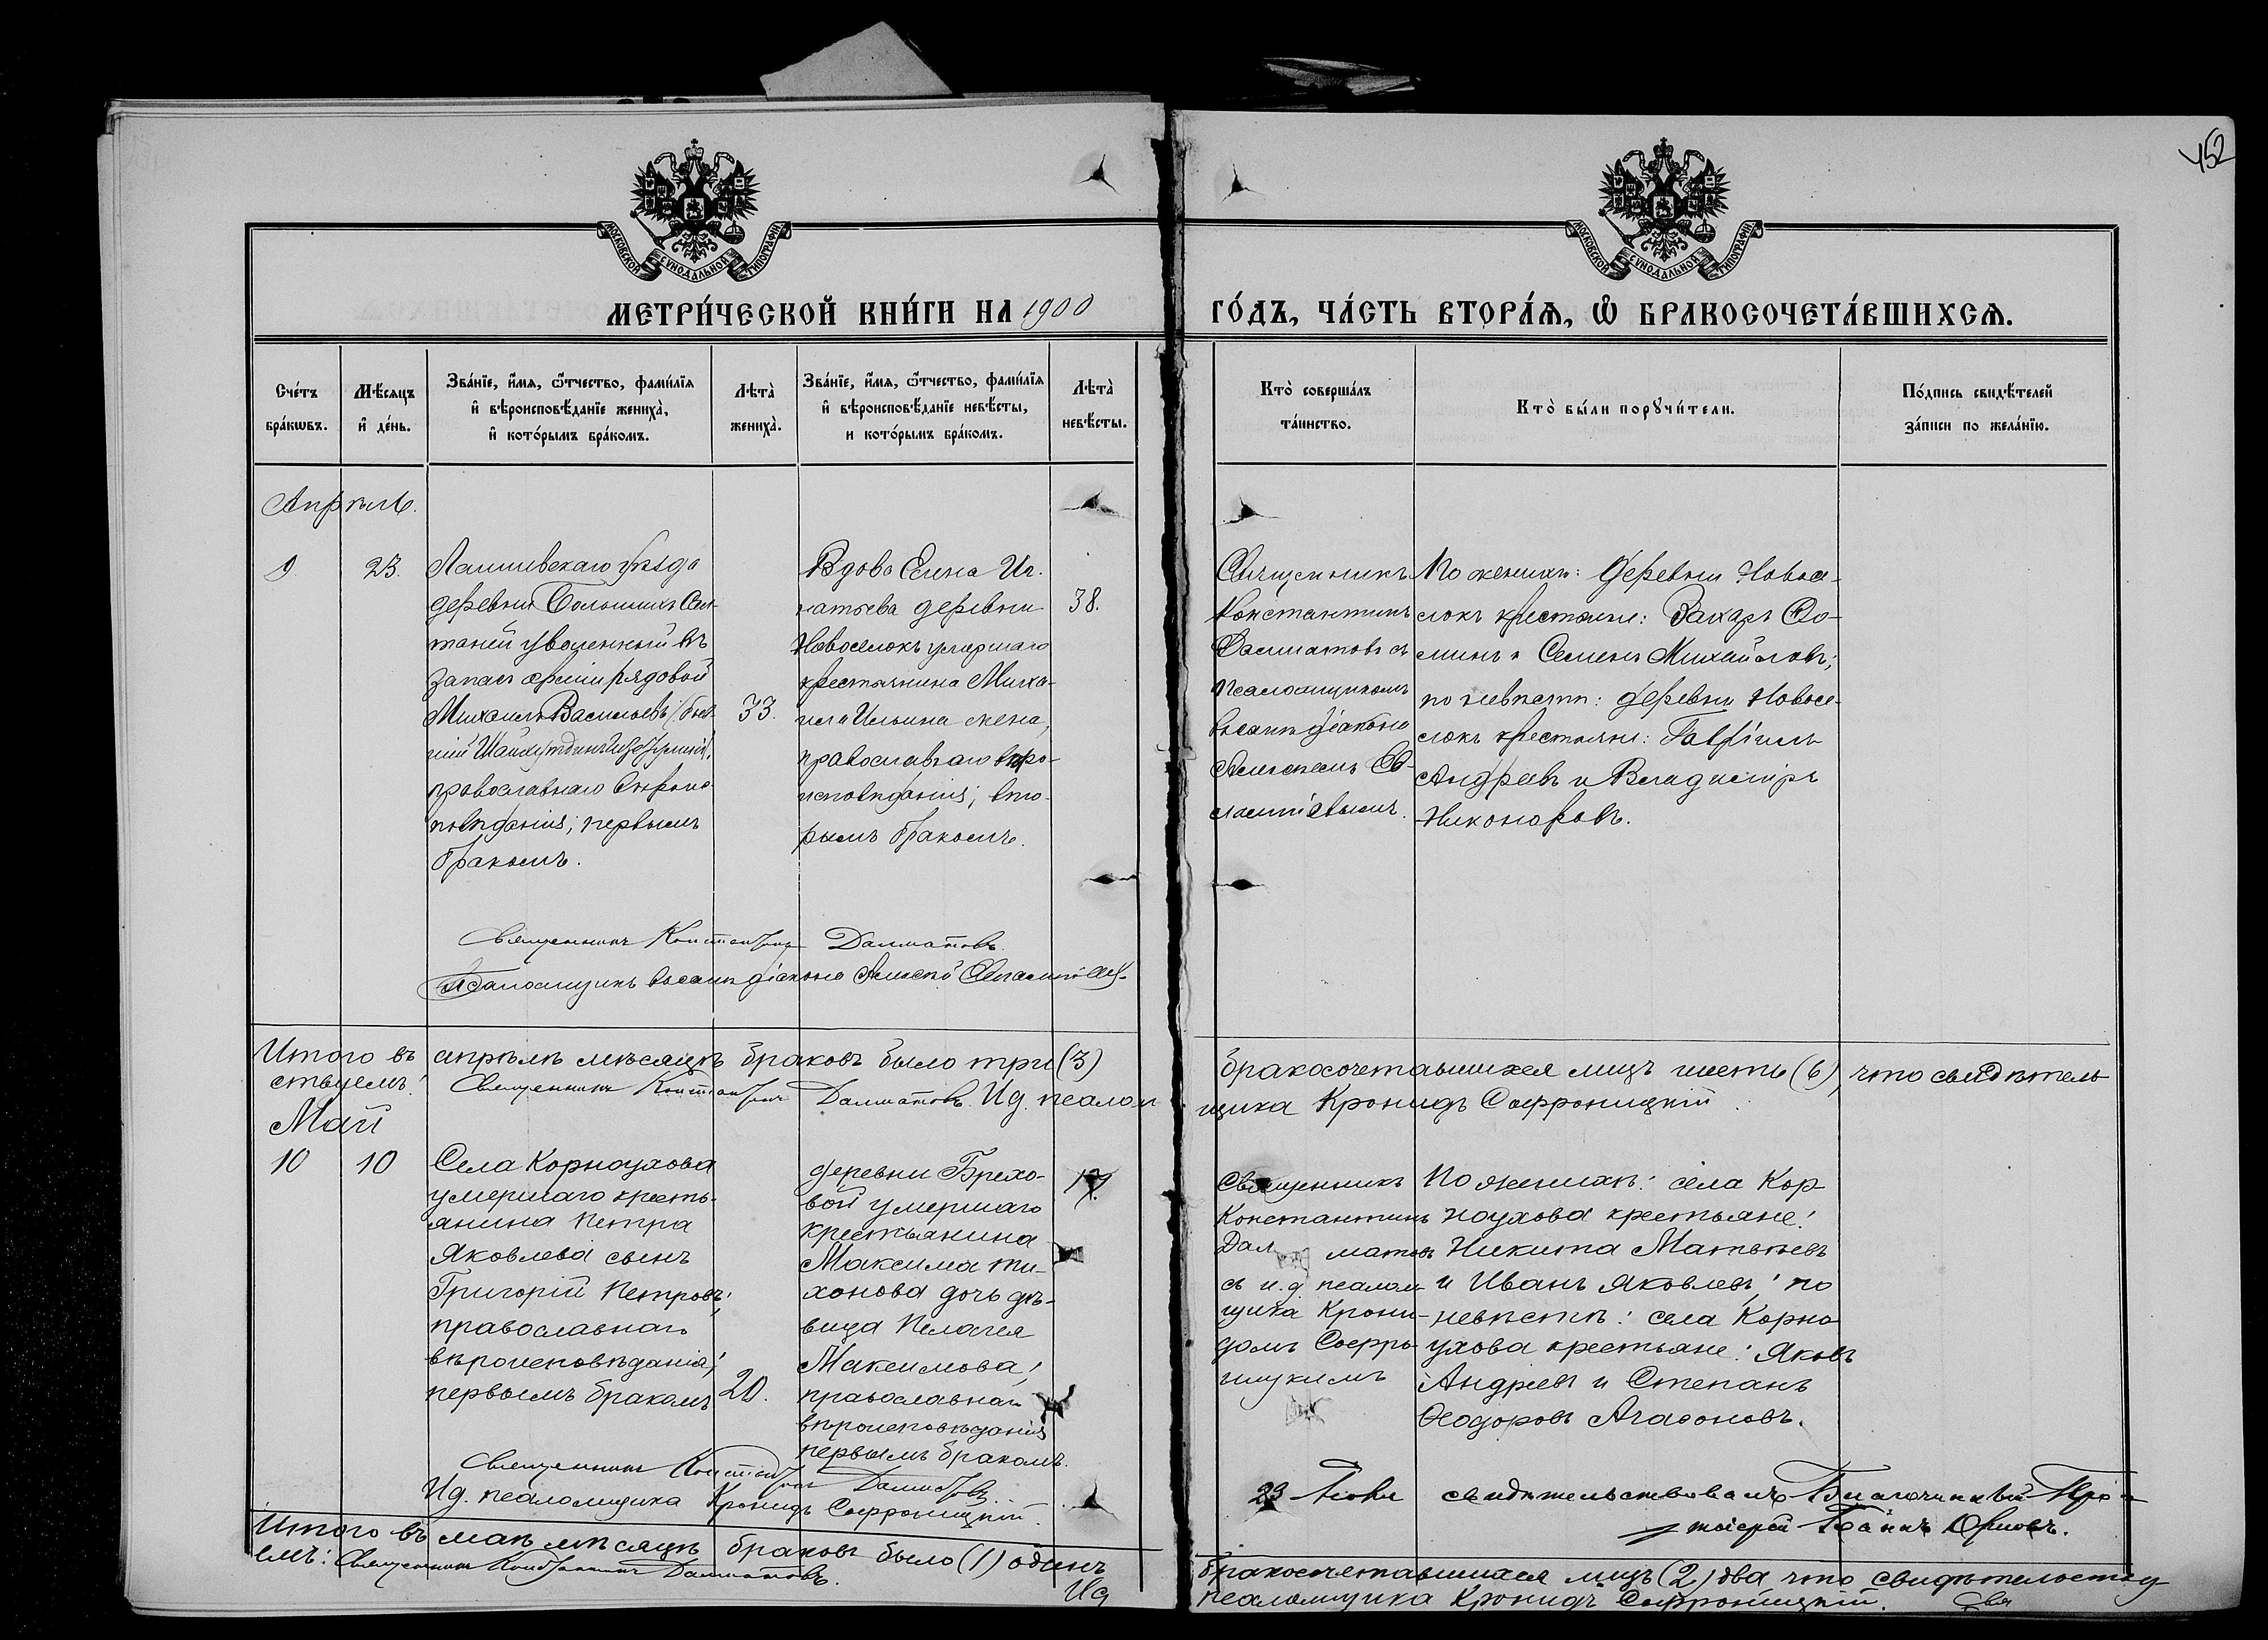 452
МОСКОВСКОЙ СѴНОДАЛЬНОЙ ТИПОГРАФІИ
МОСКОВСКОЙ СѴНОДАЛЬНОЙ ТИПОГРАФІИ
МЕТРИ́ЧЕСКОЙ КНИ́ГИ НА 1900
ГО́ДЪ, ЧА́СТЬ ВТОРА́Ѧ, Ѡ҆ БРАКОСОЧЕТА́ВШИХСѦ.
Сче́тъ
бра́кѡвъ.
Мѣ́сяцъ
и҆ де́нь.
Зва́нїе, и҆́мѧ, ѻ҆́тчество, фами́лїѧ
и҆ вѣроисповѣ́данїе жениха̀,
и҆ кото́рымъ бра́комъ.
Лѣта̀
жениха̀.
Зва́нїе, и҆́мѧ, ѻ҆́тчество, фами́лїѧ
и҆ вѣроисповѣ́данїе невѣ́сты,
и кото́рымъ бра́комъ.
Лѣта̀
невѣ́сты.
Кто̀ соверша́лъ
та́инство.
Кто̀ бы́ли порꙋчи́тели.
По́дпись свидѣ́телей
за́писи по жела́нїю.
Апрѣль.
9.
23.
Лаишевскаго уѣзда
деревни Большихъ
уволенный въ
запасъ арміи рядовой
Михаилъ Васильевъ (быв-
шій
православнаго вѣроис-
повѣданія; первымъ
бракомъ.
33.
Вдова Елена Иг-
натьева деревни
Новоселокъ умершаго
крестьянина Миха-
ила Ильина жена,
православнаго вѣро-
исповѣданія; вто-
рымъ бракомъ.
38.
Священникъ
Константинъ
Далматовъ съ
псаломщикомъ
діакона
Алексѣемъ Ев-
По женихѣ: деревни Новосе-
локъ крестьяне: Захаръ Ѳо-
минъ и Семенъ Михайловъ;
по невѣстѣ: деревни Новосе-
локъ крестьяне: Гавріилъ
Андреевъ и Владиміръ
Никоноровъ.
Священникъ Константинъ Далматовъ.
Псаломщикъ діакона Алексѣй
Итого въ апрѣлѣ мѣсяцѣ браковъ было три (3)
бракосочетавшихся лицъ шесть (6), что свидѣтель-
ствуемъ: Священникъ Константинъ Далматовъ. И.д. псалом-
щика Кронидъ Софроницкій.
Май
10
10
Села Корноухова
умершаго кресть-
янина Петра
Яковлева сынъ
Григорій Петровъ;
православнаго
вѣроисповѣданія;
первымъ бракомъ
20.
деревни Брехо-
вой умершаго
крестьянина
Максима Ти-
хонова дочь дѣ-
вица Пелагея
Максимова;
православнаго
вѣроисповѣданія
первымъ бракомъ.
Священникъ
Константинъ
Далматовъ
съ и.д. псалом-
щика Крони-
домъ Софро-
ницкимъ
По женихѣ: села Кор-
ноухова крестьяне:
Никита Матвѣевъ
и Иванъ Яковлевъ; по
невѣстѣ: села Корно-
ухова крестьяне: Яковъ
Андреевъ и Степанъ
Ѳеодоровъ Агафоновъ.
Священникъ Константинъ Далматовъ.
И.д. псаломщика Кронидъ Софроницкій.
23 свидѣтельствовалъ Благочинный Про-
тоіерей Іоаннъ
Итого въ маѣ мѣсяцѣ браковъ было (1) одинъ
бракосочетавшихся лицъ (2) два что свидѣтельству-
емъ: Священникъ Константинъ Далматовъ.
Ид
псаломщика Кронидъ Софроницкій.